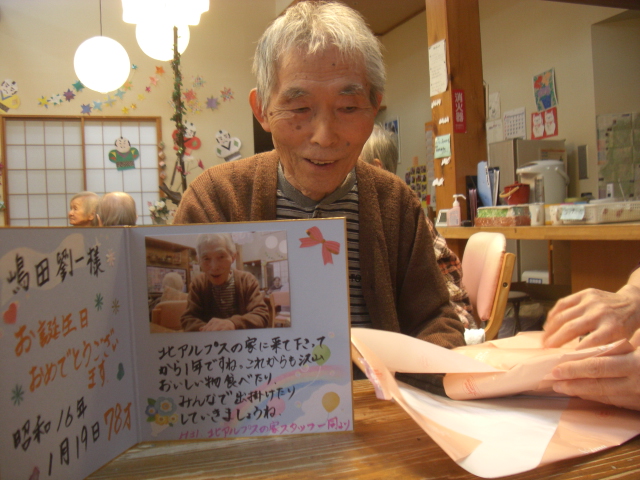 嶋田劉一様
お誕生日
おめでとうござい
ます
昭和16年
1月19日 78才
北アルプスの家に来て下さって
から1年ですね。これからも沢山
おいしい物食べたり、
みんなで出掛けたり
していきましょうね。
北アルプスの家スタッフ一同より
消火器